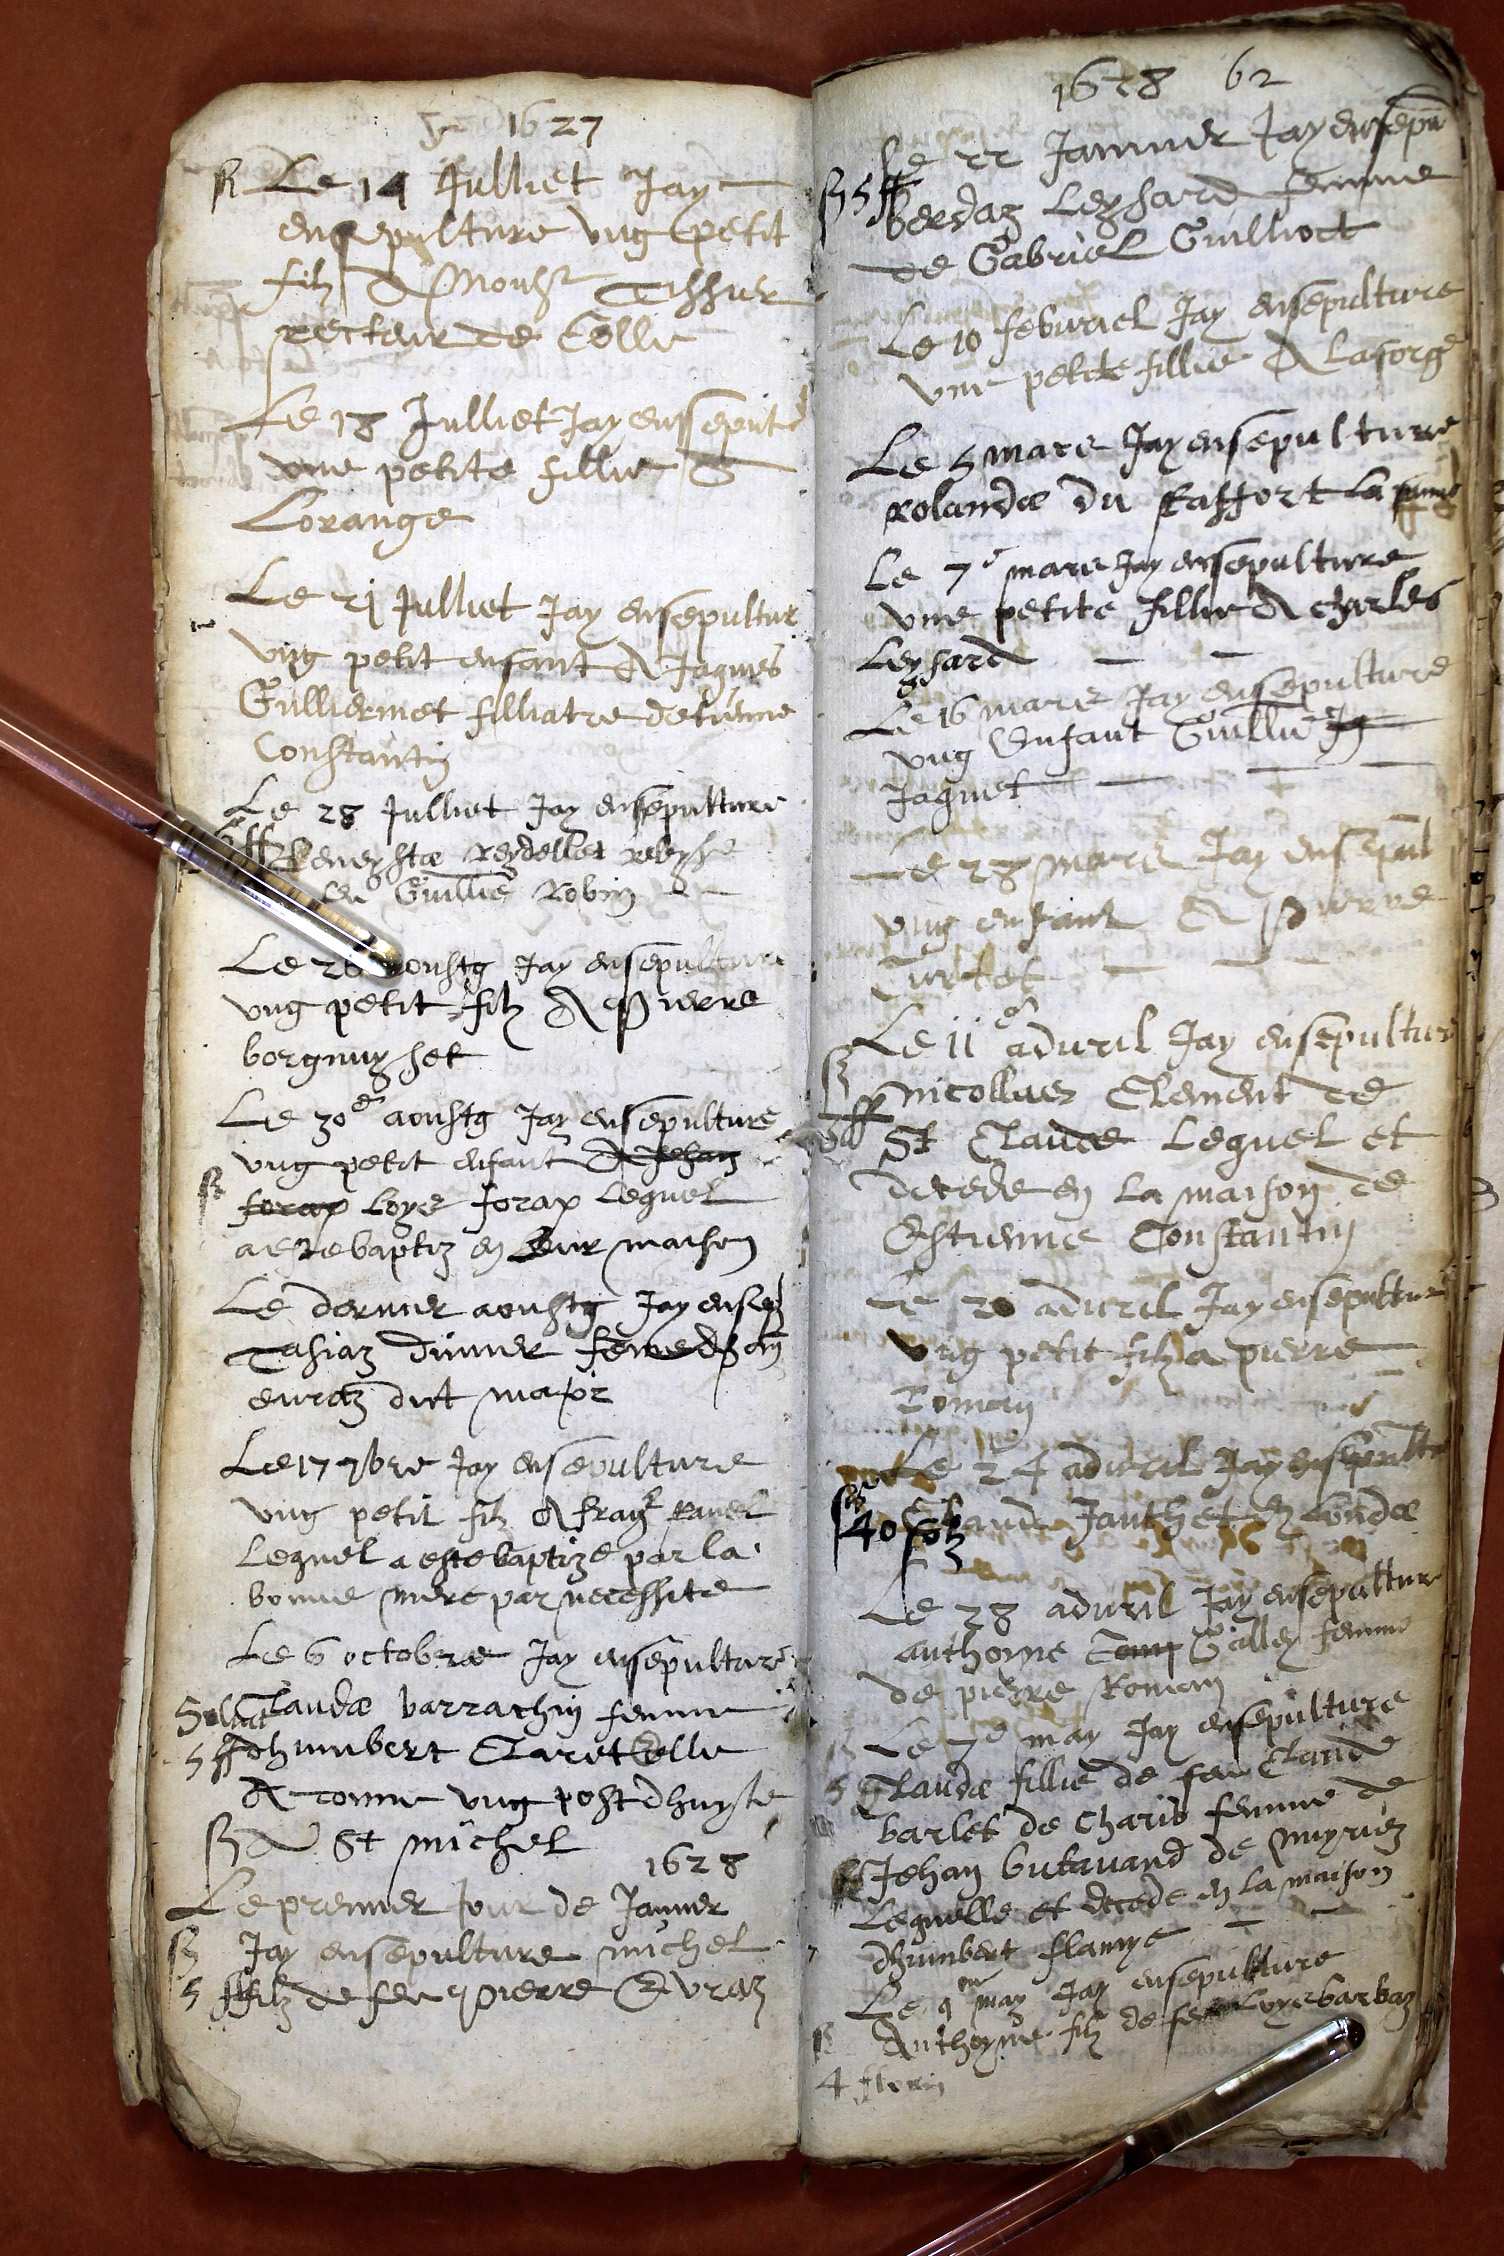 1627
Le 14 Julliet Jay
ensepulture ung petit
filz A Monsr Tissur
recteur de Collie
Le 18 Julliet Jay ensepulte
une petite fillie
Lorange
Le 21 Julliet Jay ensepultur
ung petit enfant A Jaques
Gulliermet filliatre detienne
Constantin
Le 28 Julliet Jay ensepulture
Reydellet
Guillie Robin
Le 26 aoustz Jay ensepulture
ung petit filz A Pierre
borgmeyset
Le 30e aoustz Jay ensepulture
ung petit enfant A Jehan
forax loys forax lequel
a este baptiz en leur maison
Le dernier aoustz Jay ensep
femme
evraz dict major
Le 17 7bre Jay ensepulture
ung petit filz A Franz Ravel
Lequel a este baptize par la
bonne mere par necessite
Le 6 octobre Jay ensepulture
Claudæ barrachin femme
5 ff dhumbert Claret Elle
A donne ung post dhuyle
A St michel
1628
Le premier Jour de Janvier
Jay ensepulture michel
5 ff filz de feu pierre Evraz
1628 62
Le 22 Janvier Jay ensepul
5 ff Leysard femme
de Gabriel Guilliot
Le 10 febvriel Jay ensepulture
une petite fillie A Lasorge
Le 5 mars Jay ensepulture
Rolandæ du Raffort la
Le 7e mars Jay ensepulture
une petite fillie A Charles
Leysard
Le 16 mars Jay ensepulture
ung Enfant Guillie
Jaquet
Le 28 mars Jay ensepul
ung enfant A Pierre
Curtet
Le 11e apvril Jay ensepulture
Clement de
St Claude Lequel et
decede en la maison de
Estienne Constantin
Le 20 apvril Jay ensepulture
ung petit filz a pierre
Roman
Le 24 apvril Jay ensepulte
40 solz Claude Janthet
Le 28 apvril Jay ensepulture
anthoyne femme
de pierre Roman
Le 7e may Jay ensepulture
Claudæ fillie de feu Claude
barlet de Charis femme de
Jehan butavand de
Lequelle et decede en la maison
dhumbert flamye
Le 9me may Jay ensepulture
Anthoyne filz de feu Loys barbaz
4 florin